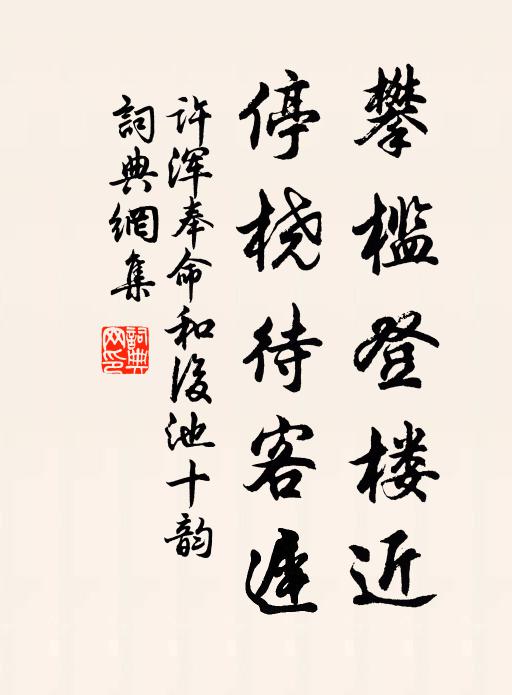 攀槛登楼近
停桡待客遲
许浑奉命和後池十韵
詞典網集
詞典网印